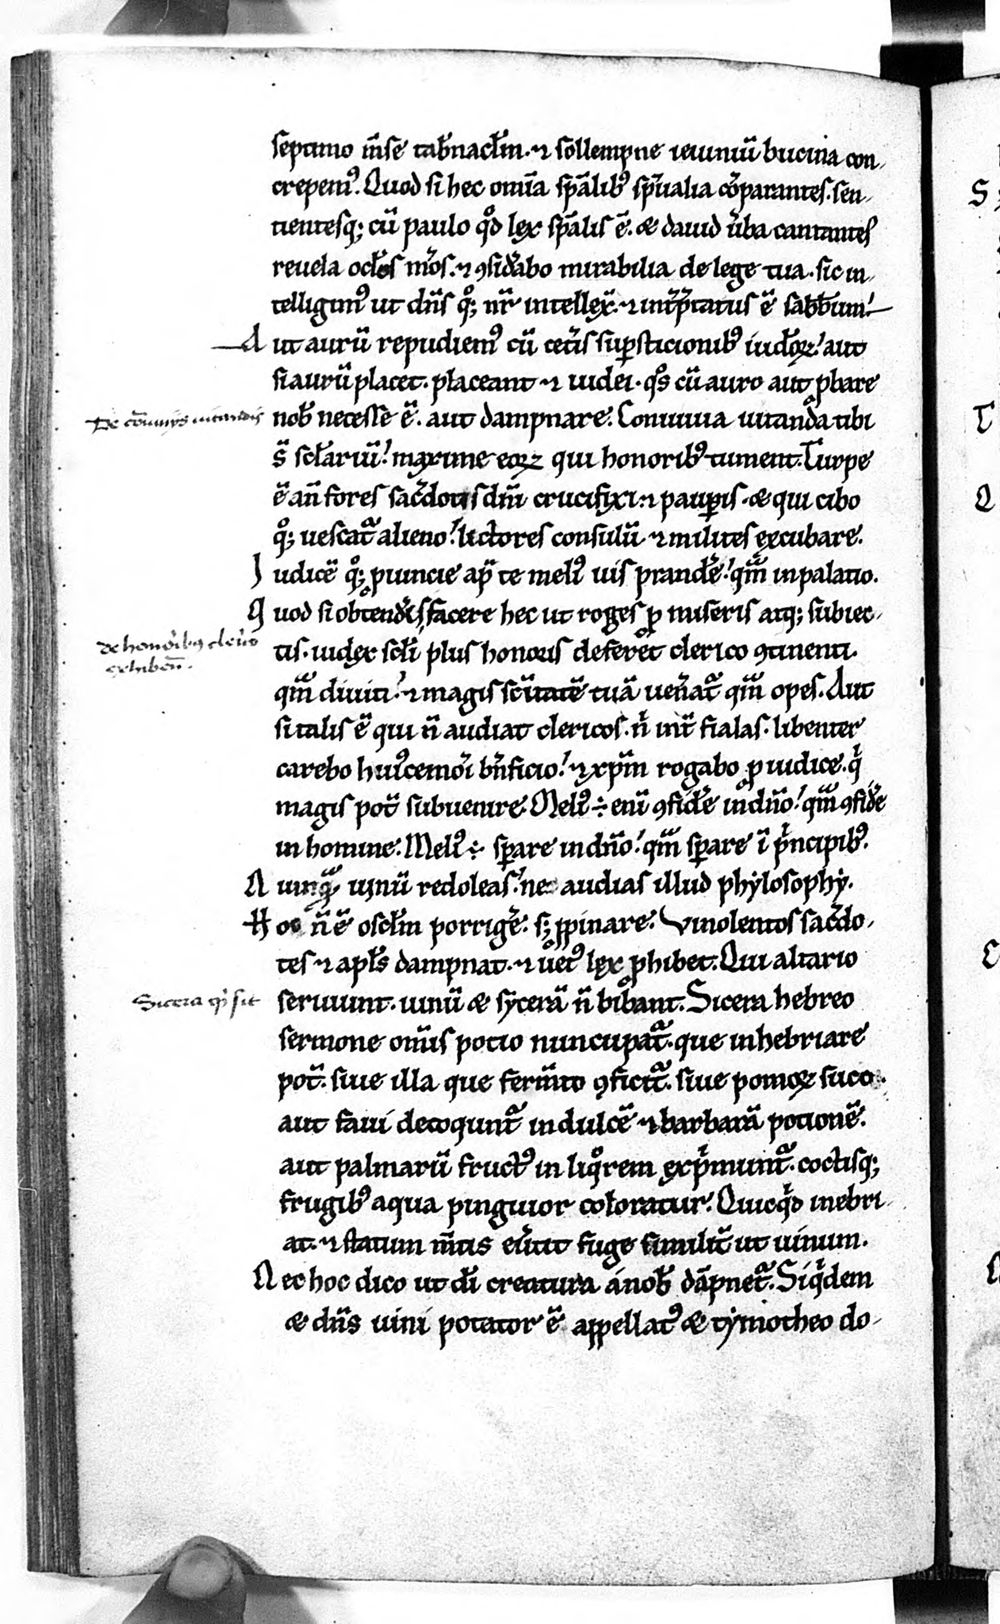 septimo m̄se tab̄nacl̄m. ⁊ sollempne ieiuniū bucina con-
crepem᷒. Quod si hec om̄ia sp̄alib᷒ sp̄ualia cōparantes. sen-
tientesq; cū paulo qd̊ lex sp̄alis ē. & dauid ūba cantantes
reuela ocl̄os mōs. ⁊ ꝯsid̄abo mirabilia de lege tua. sic in-
telligim᷒ ut dn̄s q̊; nr̄ intellex̄. ⁊ int̄p̄tatus ē sabb̄um.
Aut aurū repudiem᷒ cū cet̄is suꝑsticionib᷒ iud̄oꝝ. aut
si aurū placet. placeant ⁊ iudei. qo̊s cū auro aut ꝓbare
De cōuiuijs uitandis
nob̄ necesse ē. aut dampnare. Conuiuia uitanda tibi
s̄ sc̄lariū. maxime eoꝝ qui honorib᷒ tument. Turpe
ē an̄ fores sac̄dotis dn̄i crucifixi. ⁊ pauꝑis. & qui cibo
q̊; uescat᷑ alieno. lictores consulū ⁊ milites excubare.
Iudicē q̊; ꝓuincie ap̄ te meli᷒ uis prand̄e. qm̄ in palatio.
Quod si obtend̄is facere hec ut roges ꝓ miseris atq; subiec-
de honorib᷒ clerico
exhiben̄.
tis. iudex sc̄li plus honoris deferet clerico ꝯtinenti.
qm̄ diuiti. ⁊ magis sc̄itatē tuā uen̄at᷑ qm̄ opes. Aut
si talis ē qui n̄ audiat clericos. n̄ int̄ fialas. libenter
carebo hui᷒cemōi bn̄ficio. ⁊ xp̄m rogabo ꝓ iudice. qͥ
magis pot̄ subuenire. Meli᷒ ÷ eni̅ ꝯfid̄e in dn̄o. qm̄ ꝯfid̄e
in homine. Meli᷒ ÷ sꝑare in dn̄o. qm̄ sꝑare ī pͥncipib᷒.
Nunqͣ uinū redoleas. ne audias illud phylosophy.
Hoc n̄ ē oscl̄m porriḡe. sꝫ ꝓpinare. Vinolentos sac̄do-
tes ⁊ apl̄s dampnat. ⁊ uet᷒ lex ꝓhibet. Qui altario
Sicera qͥ sit
seruiunt. uinū & sycerā n̄ bibant. Sicera hebreo
sermone om̄is potio nuncupat᷑. que inhebriare
pot̄. siue illa que ferm̄to ꝯficit᷑. siue pomoꝝ suco.
aut faui decoqunt᷑ in dulcē ⁊ barbarā potionē.
aut palmarū fruct᷒ in liqͦrem expͥmunt᷑. coctisq;
frugib᷒ aqua pinguior coloratur. Quicqͥd inebri-
at. ⁊ statum m̄tis eūtit fuge similit̄ ut uinum.
Nec hoc dico ut dī creatura a nob̄ dāpnet᷑. Siqͥdem
& dn̄s uini potator ē appellat᷒ & tymotheo do-